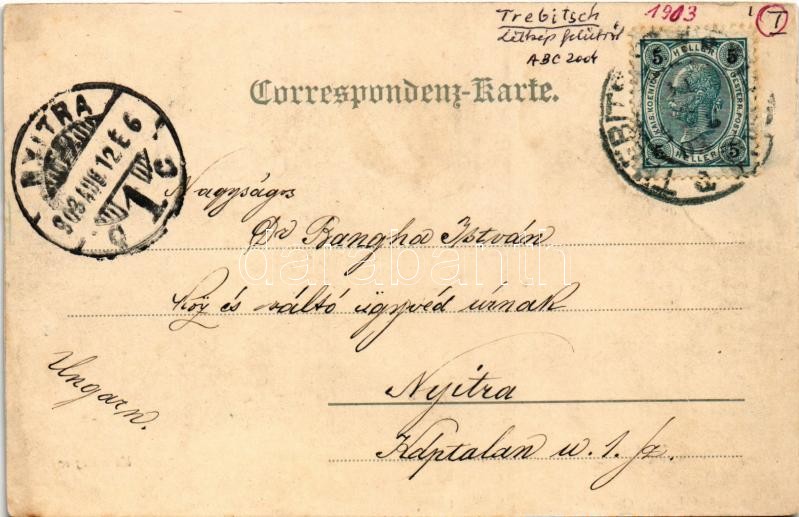 Trebitsch
látkép felülről
ABC 2004
1903
1
I
Correspondenz-Karte.
5 HELLER 5
KAIS. KOENIGL. OESTERR. POST
5 HELLER 5
TREBITSCH
NYITRA
903 AUG 12 É 6
C 1
Nagyságos
Dr Rangha István
köz és váltó ügyvéd úrnak
darabanth
Nyitra
Káptalan u. 1. sz.
Ungarn.